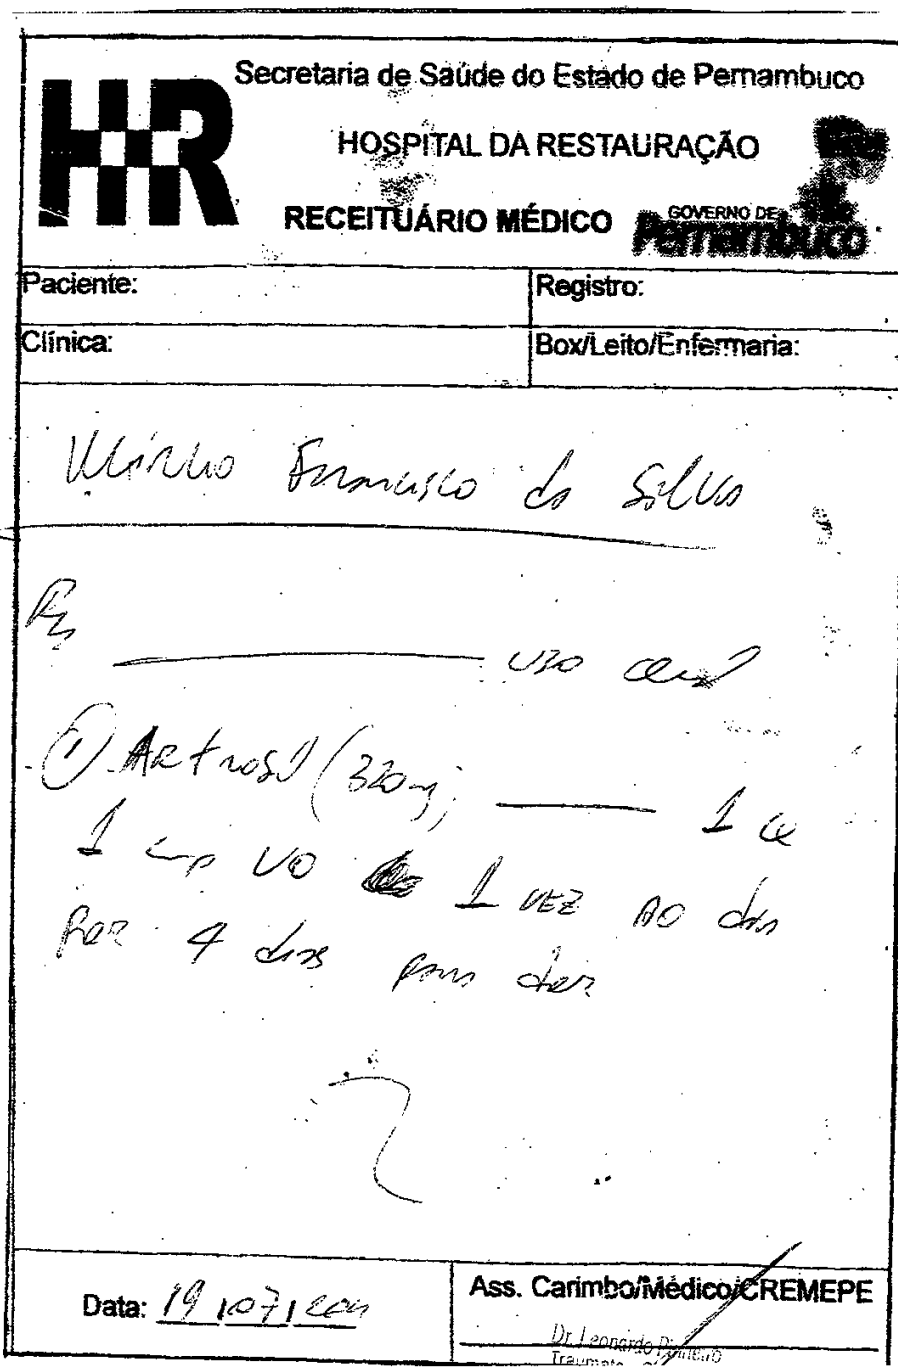 HR
Secretaria de Saúde do Estado de Pernambuco
HOSPITAL DA RESTAURAÇÃO
RECEITUÁRIO MÉDICO
GOVERNO DE
Pernambuco
Paciente:
Registro:
Clínica:
Box/Leito/Enfermaria:
Francisco da Silva
uso oral
1) Artrosil (320mg) 1 cx
1 cp VO 1 VEZ AO dia
por 4 dias para dor
Data: 19/07/
Ass. Carimbo/Médico/CREMEPE
Dr. Leonardo